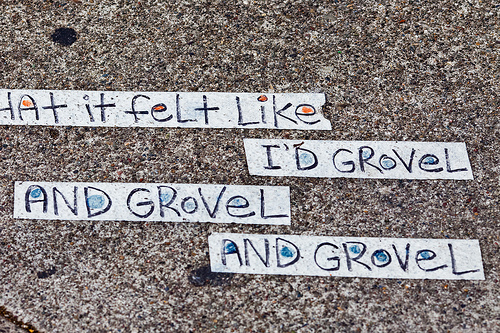 HAt it feLt Like
I'D GROVeL
AND GROVeL
AND GROVeL